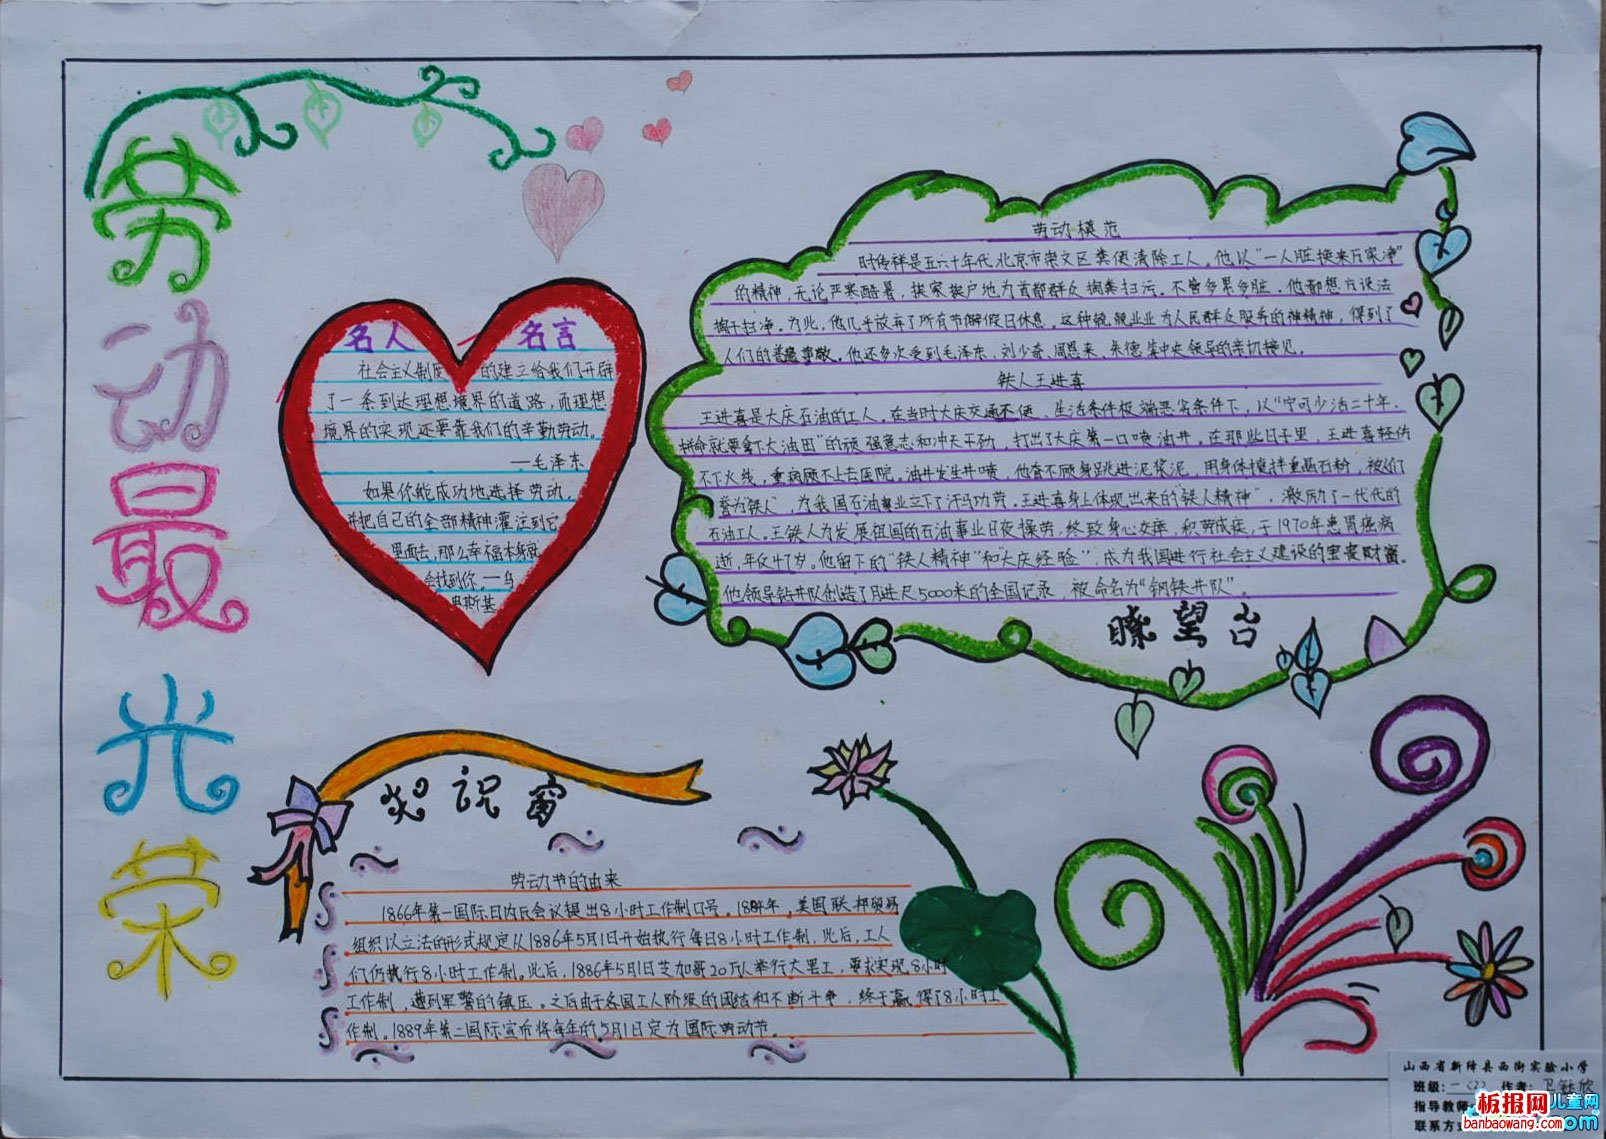 劳动最光荣
名人名言
社会主义制度的建立给我们开辟
了一条到达理想境界的道路,而理想
境界的实现还要靠我们的辛勤劳动。
—毛泽东
如果你能成功地选择劳动,
并把自己的全部精神灌注到它
里面去,那么幸福本身就
会找到你。—乌
斯基
劳动模范
时传祥是五六十年代北京市崇文区粪便清除工人。他以“一人脏换来万家净”
的精神,无论严寒酷暑,挨家挨户地为首都群众掏粪扫污。不管多累多脏,他都想方设法
掏干扫净。为此,他几乎放弃了所有节假日休息。这种兢兢业业为人民群众服务的精神,得到了
人们的普遍尊敬。他还多次受到毛泽东、刘少奇、周恩来、朱德等中央领导的亲切接见。
铁人王进喜
王进喜是大庆石油的工人。在当时大庆交通不便、生活条件极端恶劣条件下,以“宁可少活二十年,
拼命就要拿下大油田”的顽强意志和冲天干劲,打出了大庆第一口喷油井。在那些日子里,王进喜轻伤
不下火线,重病顾不上去医院,油井发生井喷,他奋不顾身跳进泥浆泥,用身体搅拌重晶石粉,被人们
誉为“铁人”,为我国石油事业立下了汗马功劳。王进喜身上体现出来的“铁人精神”,激励了一代代的
石油工人。王铁人为发展祖国的石油事业日夜操劳,终致身心交瘁,积劳成疾,于1970年患胃癌病
逝,年仅47岁。他留下的“铁人精神”和“大庆经验”,成为我国进行社会主义建设的宝贵财富。
他领导钻井队创造了月进尺5000米的全国记录,被命名为“钢铁井队”。
瞭望台
知识窗
劳动节的由来
1866年第一国际日内瓦会议提出8小时工作制口号。1884年,美国联邦贸易
组织以立法的形式规定从1886年5月1日开始执行每日8小时工作制,此后,工人
们仍执行8小时工作制。此后,1886年5月1日芝加哥20万人举行大罢工,要求实现8小时
工作制,遭到军警的镇压。之后由于各国工人阶级的团结和不断斗争,终于赢得了8小时工
作制。1889年第二国际宣布将每年的5月1日定为国际劳动节。
山西省新绛县西街实验小学
班级: 作者:卫钰欣
指导教师
联系方式
板报网
儿童网
banbaowang.com